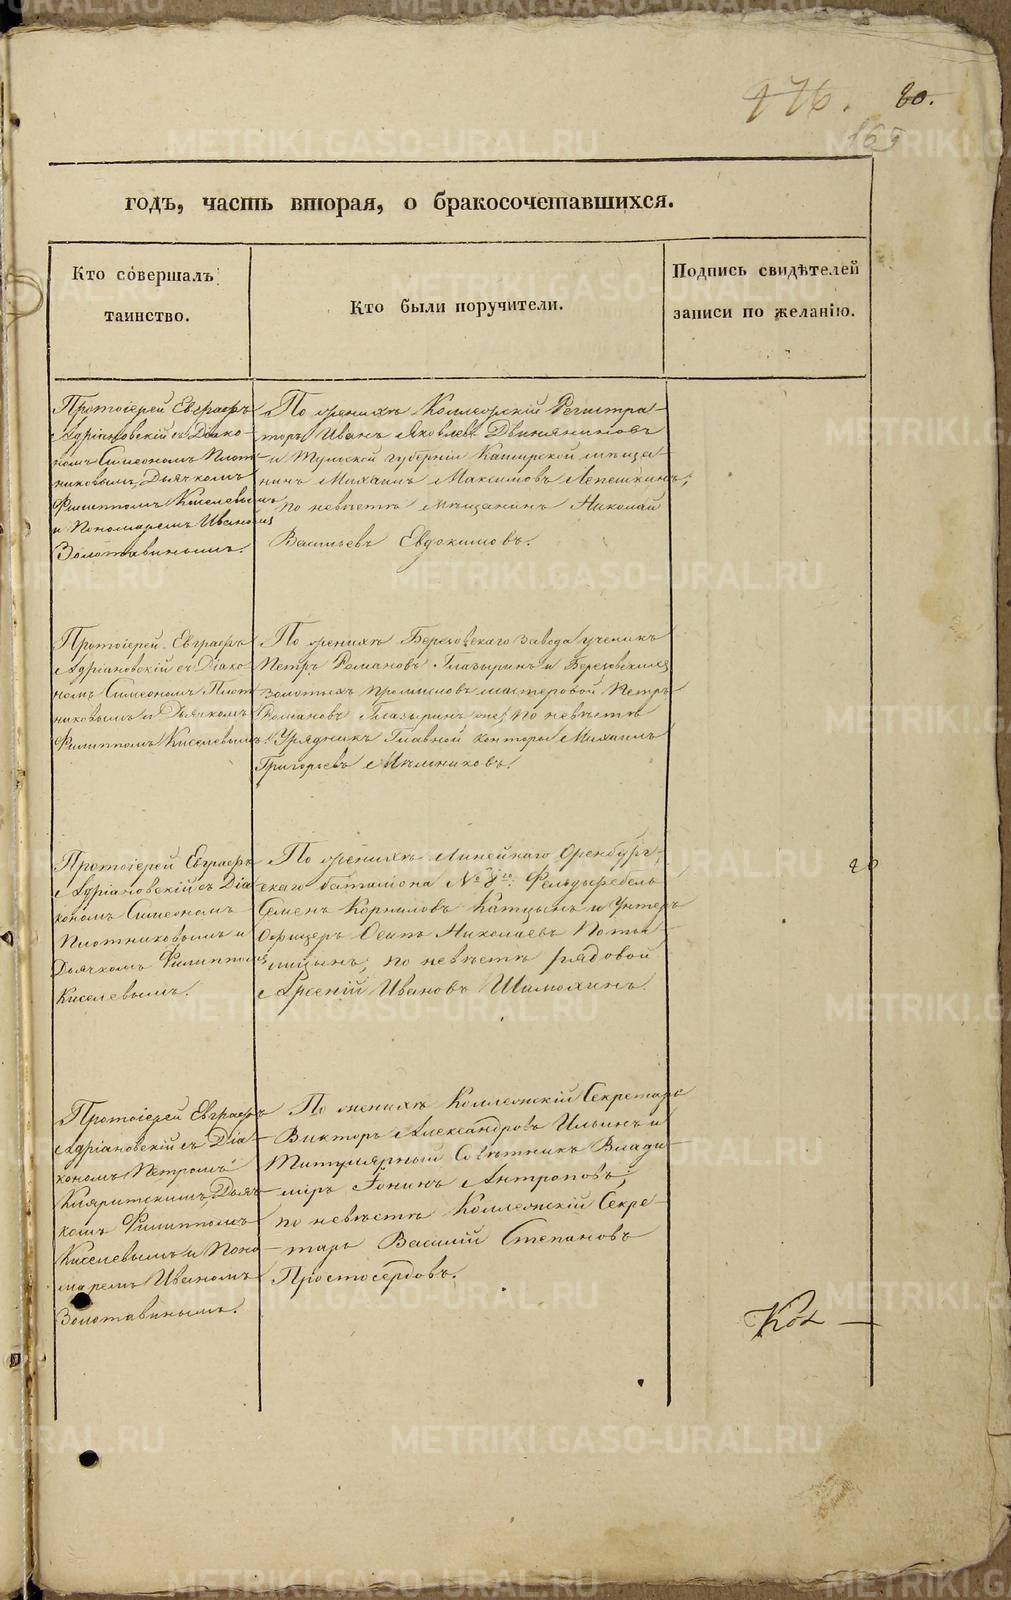 176.
80.
165
годъ, часть вторая, о бракосочетавшихся.
Кто совершалъ
таинство.
Кто были поручители.
Подпись свидѣтелей
записи по желанію.
Протоіерей Евграфъ
Адріановскій съ Діако-
номъ Симеономъ Плот-
никовымъ, Дьячкомъ
Филиппомъ Киселевымъ
и Пономаремъ Иваномъ
Золотавинымъ.
По женихѣ Коллежскій Регистра-
торъ Иванъ Яковлевъ Двиняниновъ
и Тульской губерніи Каширской мѣща-
нинъ Михаилъ Максимовъ Лепешкинъ;
по невѣстѣ мѣщанинъ Николай
Васильевъ Евдокимовъ.
Протоіерей Евграфъ
Адріановскій съ Діако-
номъ Симеономъ Плот-
никовымъ и Дьячкомъ
Филиппомъ Киселевымъ.
По женихѣ Березовскаго завода ученикъ
Петръ Романовъ Глазыринъ и Березовскихъ
золотыхъ промысловъ мастеровой Петръ
Романовъ Глазыринъ же; по невѣстѣ
Урядникъ Главной конторы Михаилъ
Григорьевъ Мѣльниковъ.
Протоіерей Евграфъ
Адріановскій съ Діа-
кономъ Симеономъ
Плотниковымъ и
Дьячкомъ Филиппомъ
Киселевымъ.
По женихѣ Линейнаго Оренбург-
скаго баталіона № 8го: Фельдфебель
Семенъ Корниловъ Катцынъ и Унтеръ
Офицеръ Осипъ Николаевъ Поты-
лицынъ; по невѣстѣ рядовой
Арсеній Ивановъ Шамохинъ.
20
Протоіерей Евграфъ
Адріановскій съ Діа-
кономъ Петромъ
Кипритскимъ, Дьяч-
комъ Филиппомъ
Киселевымъ и Поно-
маремъ Иваномъ
Золотавинымъ.
По женихѣ Коллежскій Секретарь
Викторъ Александровъ Ильинъ и
Титулярный Совѣтникъ Влади-
міръ Іонинъ Антроповъ;
по невѣстѣ Коллежскій Секре-
тарь Василій Степановъ
Простосердовъ.